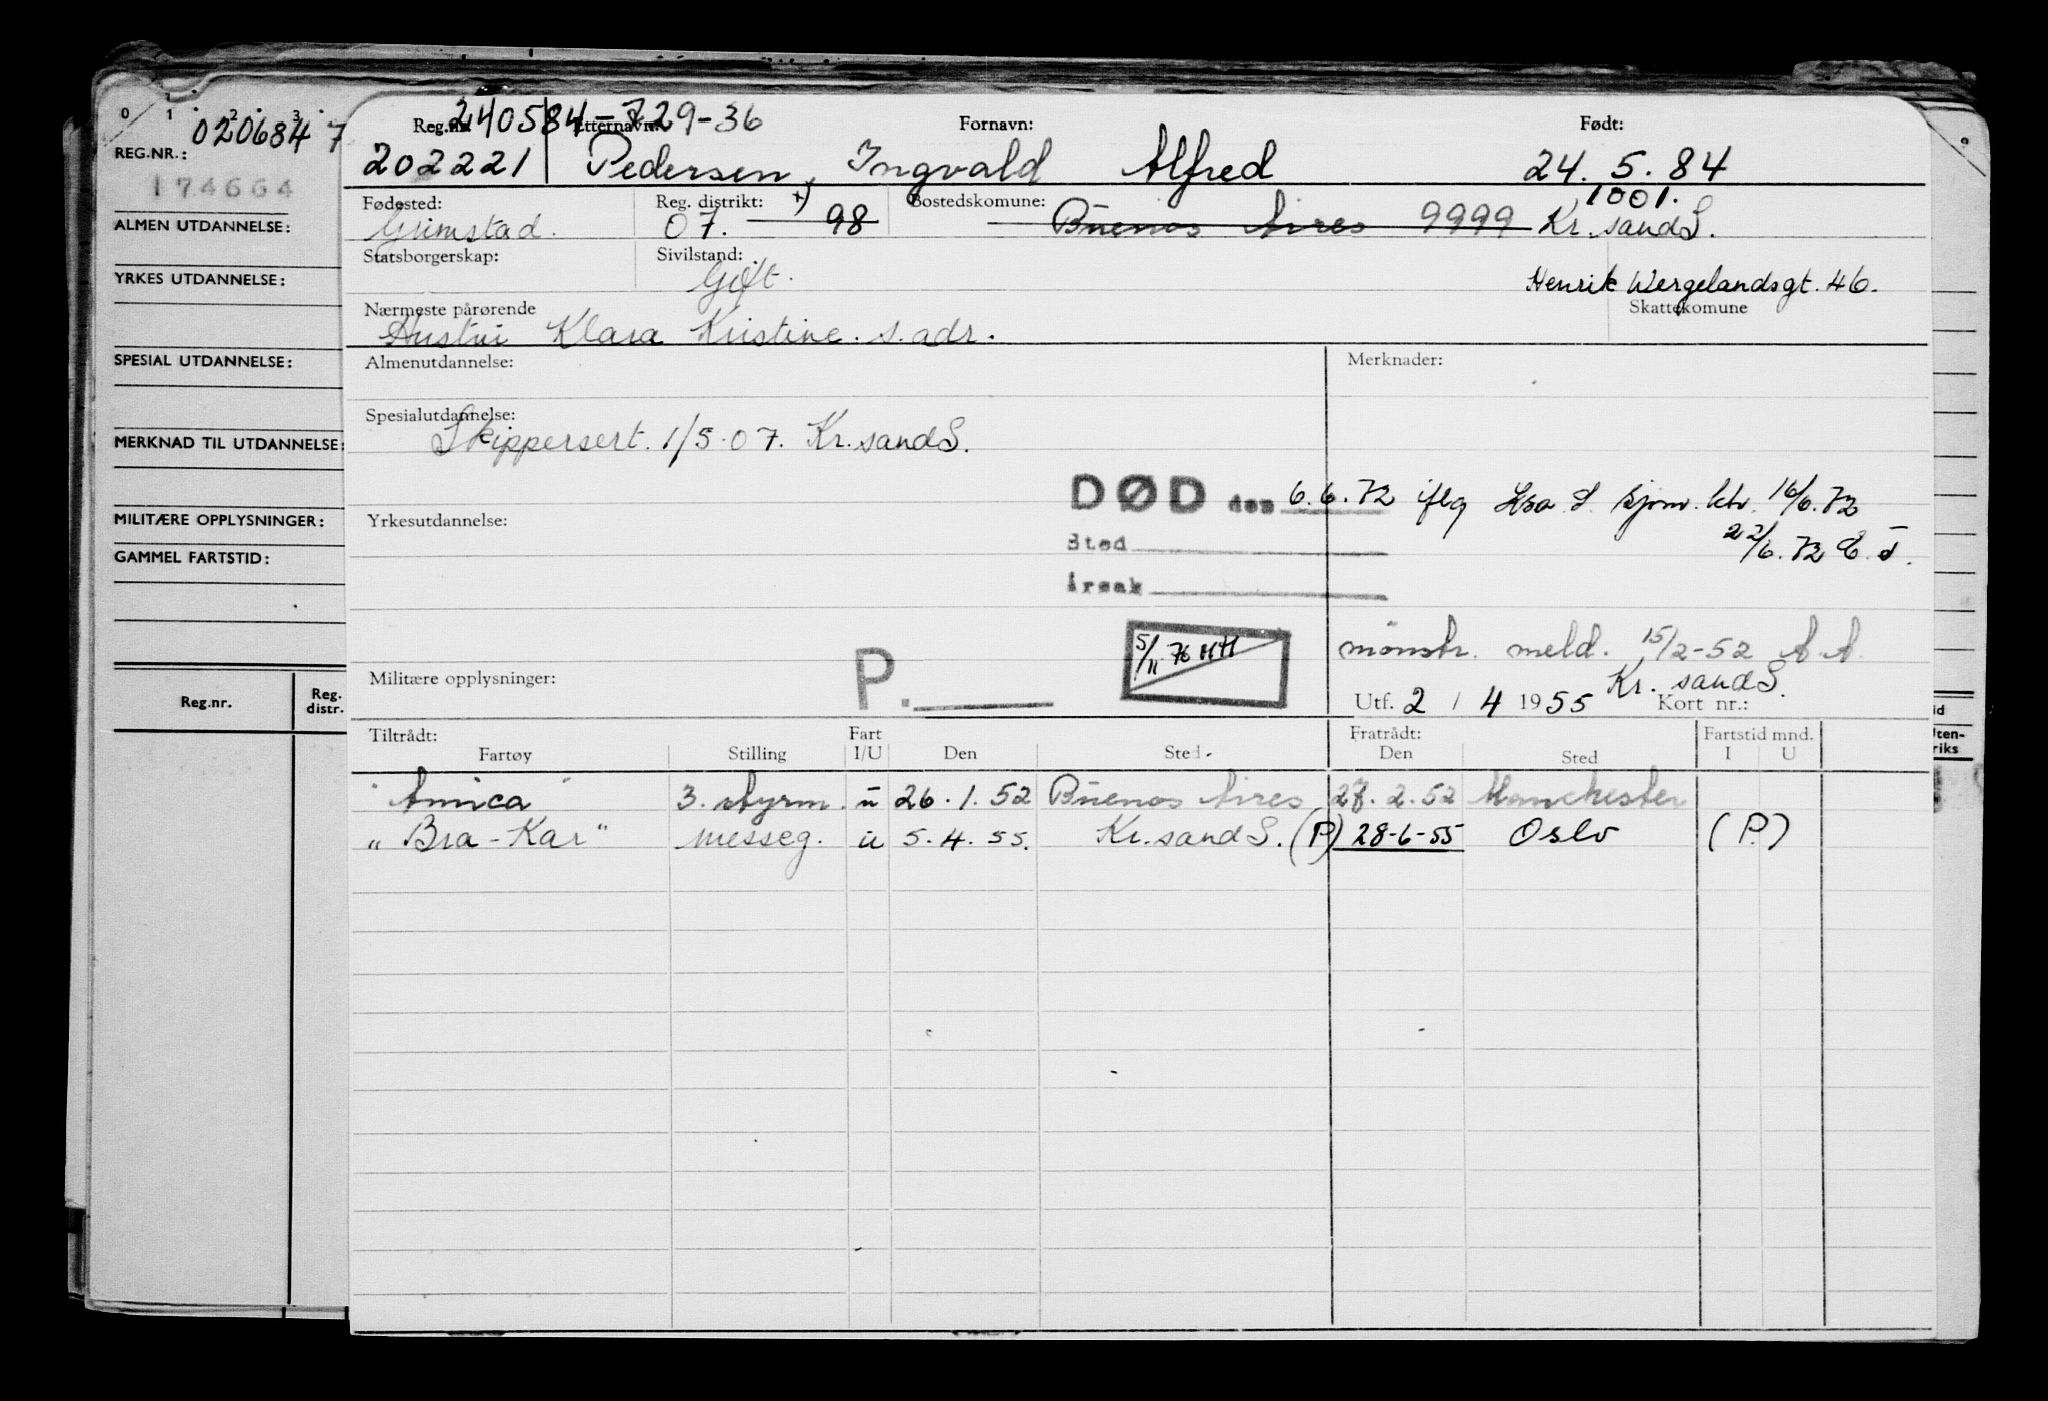 0 1 2 3
020684 7
REG.NR.:
174664
ALMEN UTDANNELSE:
YRKES UTDANNELSE:
SPESIAL UTDANNELSE:
MERKNAD TIL UTDANNELSE:
MILITÆRE OPPLYSNINGER:
GAMMEL FARTSTID:
Reg.nr. Reg. distr.
240584-729-36
Reg.nr. Etternavn: Fornavn: Født:
202221 Pedersen, Ingvald Alfred 24. 5. 84
Fødested: Reg. distrikt: Bostedskomune: 1001.
Grimstad. 07. 98 Buenos Aires 9999 Kr.sandS.
Statsborgerskap: Sivilstand:
Gift. Henrik Wergelandsgt. 46.
Nærmeste pårørende Skattekomune
Hustru Klara Kristine. s. adr.
Almenutdannelse: Merknader:
Spesialutdannelse:
Skippersert. 1/5-07. Kr.sandS.
DØD den 6.6.72 iflg 16/6.72
Yrkesutdannelse: 22/6.72
Sted
Årsak
5/11 76
mønstr. meld. 15/2-52 A.A.
Kr.sandS.
Militære opplysninger: P. Utf. 2 / 4 1955 Kort nr.:
Tiltrådt: Fart Fratrådt: Fartstid mnd.
Fartøy Stilling I/U Den Sted Den Sted I U
"Amica" 3. styrm. u 26.1.52 Buenos Aires 27.2.52 Manchester
"Bra-Kar" messeg. u 5.4.55. Kr.sandS. (P) 28-6-55 Oslo (P.)
id
Uten-
riks